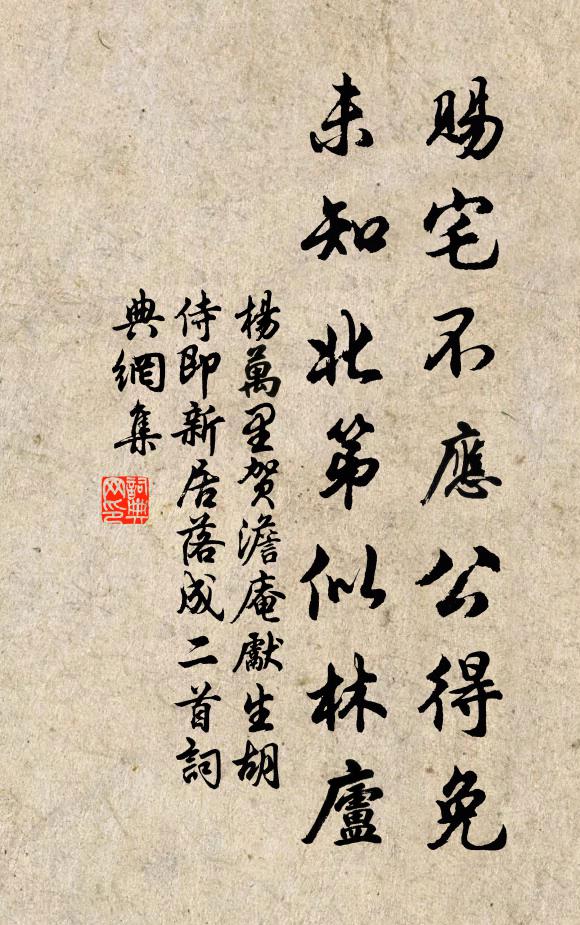 賜宅不應公得免
未知北第似林廬
楊萬里賀澹庵獻生胡
侍即新居落成二首詞
典網集
詞典网印